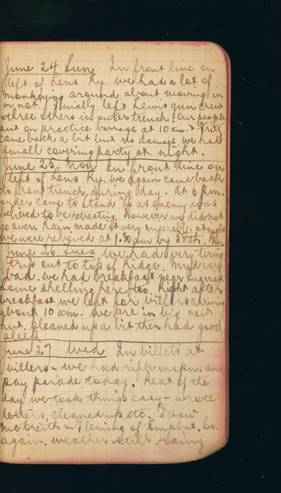 June 24 Sun In front line on
left of Lens Ry. We had a lot of
monkeying around about moving in
or not. Finally left Lewis gun crew
& three others in outer trench. Our people
put on practice barrage at 10 a.m. Fritz
came back a bit but no damage. We had
small covering party at night.
June 25, Mon In front line on
left of Lens Ry. We again came back
to front trench during day. At 6 p.m.
order came to stand to as enemy was
believed to be retreating however we did not
go over. Rain made it very miserable at night
we were relieved at 1.30 am by 38th.
June 26 Tues We had very tiring
trip out to top of ridge. Mud very
bad. We had breakfast near
some shelling here too. Right after
breakfast we left for Villers arriving
about 10 am. We are in big new
hut. Cleaned up a bit then had good
sleep.
June 27 Wed In billets at
Villers – we had rifle inspn. and
pay parade today. Rest of the
day we took things easy – wrote
letters, cleaned up etc. I saw
& Fleming of Co.
again. Weather still rainy